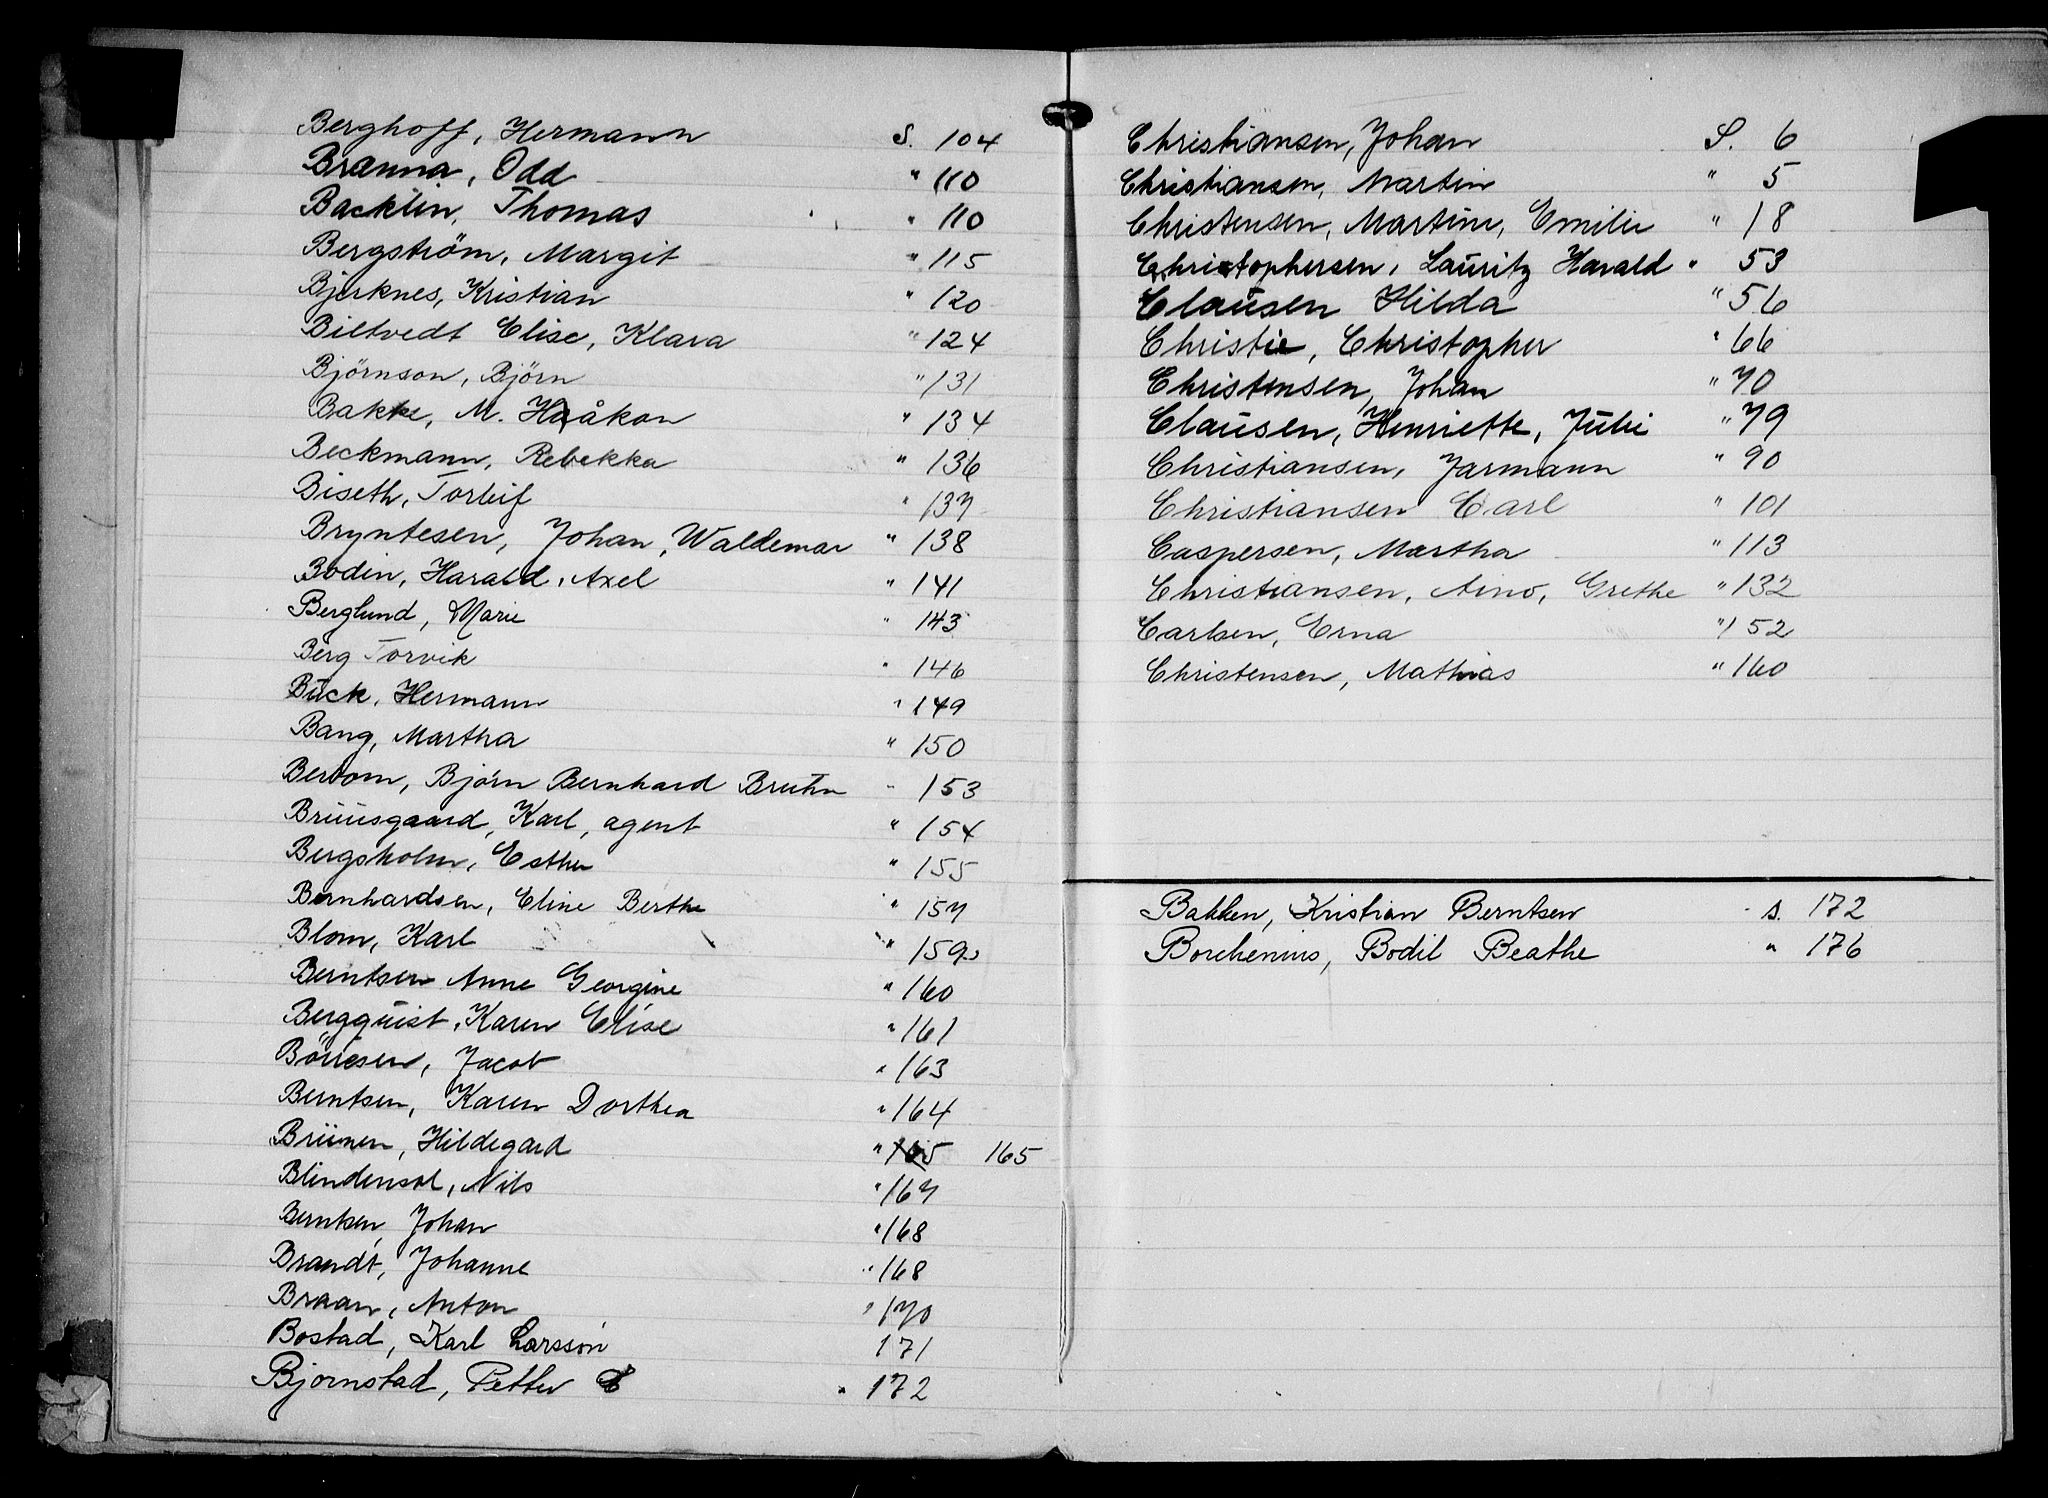 Berghoff, Hermann S. 104
Branna, Odd " 110
Backlin, Thomas " 110
Bergström, Margit " 115
Bjerknes, Kristian " 120
Biltvedt Elise, Klara " 124
Björnson, Björn " 131
Bakke, M. Haåkon " 134
Beckmann, Rebekka " 136
Biseth, Torleif " 137
Bryntesen, Johan, Waldemar " 138
Bodin, Harald, Axel " 141
Berglund, Marie " 143
Berg Torvik " 146
Buck, Hermann " 149
Bang, Martha " 150
Berdom, Björn Bernhard Bruhn " 153
Bruusgaard, Karl, agent " 154
Bergsholm, Esther " 155
Bernhardsen, Eline Berthe " 157
Blom, Karl " 159
Berntsen Anne Georgine " 160
Bergquist, Karen Elise " 161
Börresen, Jacob " 163
Berntsen, Karen Dorthea " 164
Hildegard " 165 165
Blindensol, Nils " 167
Berntsen, Johan " 168
Brandt, Johanne " 168
Braan, Anton " 170
Bostad, Karl Larsson 171
Bjornstad, Petter E " 172
Christiansen, Johan S. 6
Christiansen, Martin " 5
Christensen, Martine, Emilie " 18
Christophersen, Lauritz Harald " 53
Clausen Hilda " 56
Christie, Christopher " 66
Christensen, Johan " 70
Clausen, Henriette, Julie " 79
Christiansen, Jarmann " 90
Christiansen Carl " 101
Caspersen, Martha " 113
Christiansen, Aino, Grethe " 132
Carlsen, Erna " 152
Christensen, Mathias " 160
Bakken, Kristian Berntsen s. 172
Borchenius, Bodil Beathe " 176